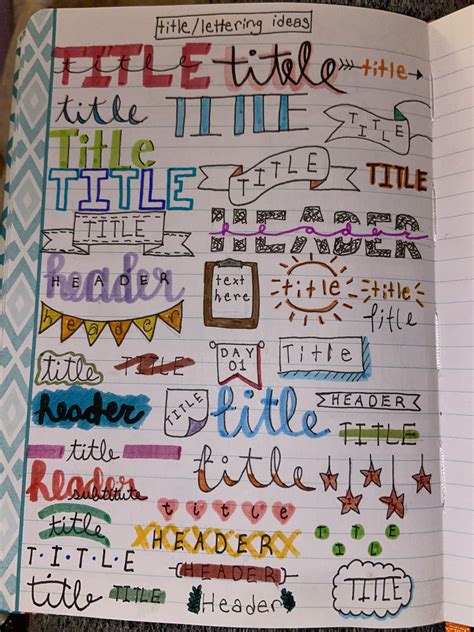 title/lettering ideas
TITLE title title title
title TITLE TITLE
Title TITLE TITLE
TITLE
TITLE HEADER header
header HEADER text here title title title
header
title TITLE DAY 01 Title HEADER
header TITLE title TITLE
title title title
header substitute title TITLE
title HEADER
T·I·T·L·E HEADER TITLE
title TITLE Header